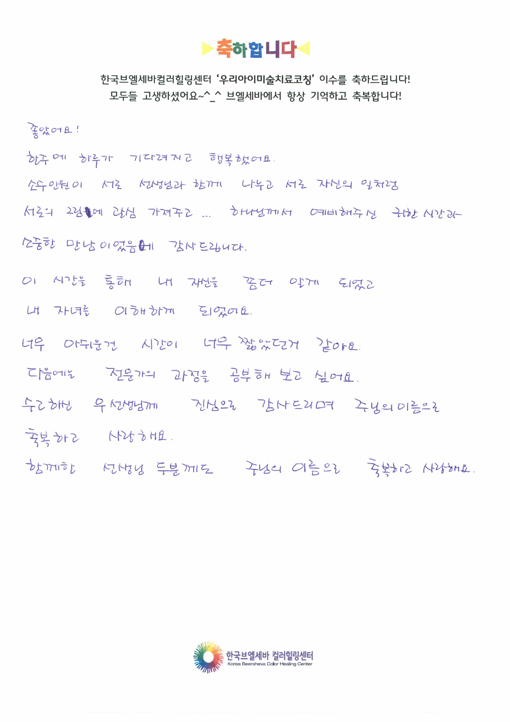 축하합니다
한국브엘세바컬러힐링센터 '우리아이미술치료코칭' 이수를 축하드립니다!
모두들 고생하셨어요~^_^ 브엘세바에서 항상 기억하고 축복합니다!
좋았어요!
한주에 하루가 기다려지고 행복했어요.
소수인원이 서로 선생님과 함께 나누고 서로 자신의 일처럼
서로의 그림에 관심 가져주고 ... 하나님께서 예비해주신 귀한 시간과
소중한 만남이었음에 감사드립니다.
이 시간을 통해 내 자신을 좀더 알게 되었고
내 자녀를 이해하게 되었어요.
너무 아쉬운건 시간이 너무 짧았던거 같아요.
다음에는 전문가의 과정을 공부해 보고 싶어요.
수고하신 우선생님께 진심으로 감사드리며 주님의 이름으로
축복하고 사랑해요.
함께한 선생님 두분께도 주님의 이름으로 축복하고 사랑해요.
한국브엘세바 컬러힐링센터
Korea Beersheva Color Healing Center